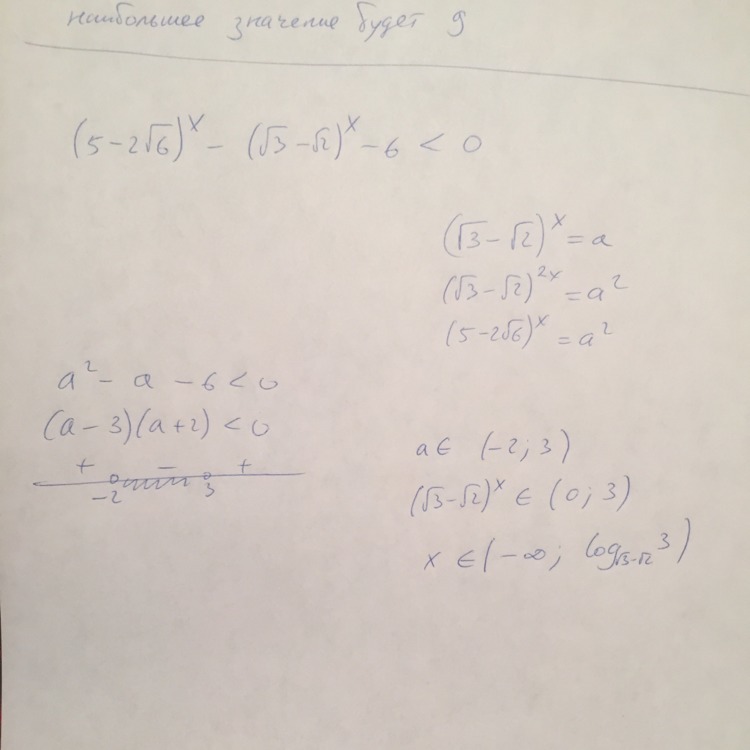 наибольшее значение будет 9
(5-2√6)^x - (√3-√2)^x - 6 < 0
(√3-√2)^x = a
(√3-√2)^2x = a^2
(5-2√6)^x = a^2
a^2 - a - 6 < 0
(a-3)(a+2) < 0
+ - +
-2 3
a ∈ (-2; 3)
(√3-√2)^x ∈ (0; 3)
x ∈ (-∞; log_√3-√2 3)